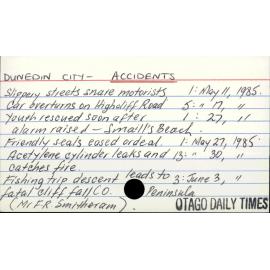 DUNEDIN CITY - ACCIDENTS
Slippery streets snare motorists 1: May 11, 1985.
Car overturns on Highcliff Road 5: " 17, "
Youth rescued soon after 1: " 27, "
alarm raised - Smaill's Beach.
Friendly seals eased ordeal. 1: May 27, 1985
Acetylene cylinder leaks and 13: " 30, "
catches fire.
Fishing trip descent leads to 3: June 3, "
fatal cliff fall / CO. Peninsula
(Mr F.R. Smitheram).
OTAGO DAILY TIMES